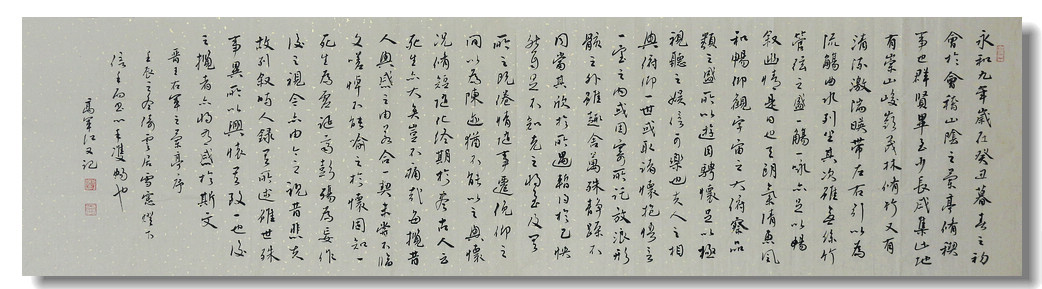 永和九年歲在癸丑暮春之初
會於會稽山陰之蘭亭脩禊
事也群賢畢至少長咸集此地
有崇山峻嶺茂林脩竹又有
清流激湍暎帶左右引以為
流觴曲水列坐其次雖無絲竹
管弦之盛一觴一詠亦足以暢
敘幽情是日也天朗氣清惠風
和暢仰觀宇宙之大俯察品
類之盛所以遊目騁懷足以極
視聽之娛信可樂也夫人之相
與俯仰一世或取諸懷抱悟言
一室之內或因寄所託放浪形
骸之外雖趣舍萬殊靜躁不
同當其欣於所遇暫得於己快
然自足不知老之將至及其
所之既惓情隨事遷俛仰之
間以為陳迹猶不能以之興懷
況脩短隨化終期於盡古人云
死生亦大矣豈不痛哉每攬昔
人興感之由若合一契未嘗不臨
文嗟悼不能喻之於懷固知一
死生為虛誕齊彭殤為妄作
後之視今亦由今之視昔悲夫
故列敘時人錄其所述雖世殊
事異所以興懷其致一也後
之攬者亦將有感於斯文
晉王右軍之蘭亭序
壬辰之冬倚雲居雪窗燈下
信手而思心手雙暢也
高軍江又記